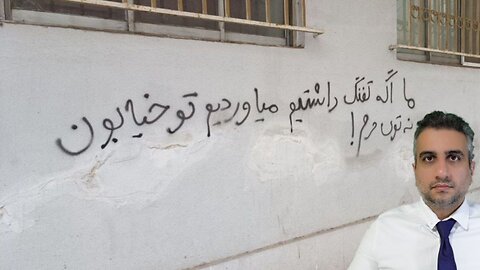 ما اگه تفنگ داشتیم میاوردیم تو خیابون
نه توی حرم!